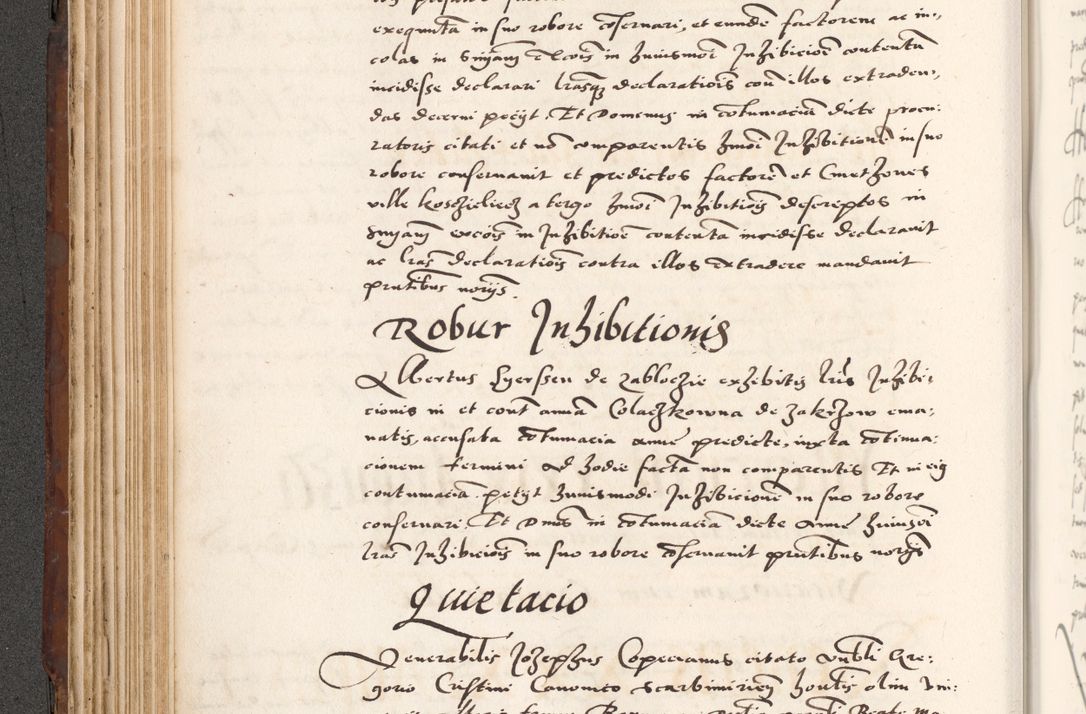 exequuta in suo robore conservari, et eundem factorem ac in-
colas in sniam excois in huiusmoi Inhibicioe contenta
incidisse declarari lrasq declaratiois con illos extraden-
das decerni petyt. Et Domenus in cotumaciam dicte procu-
ratoris citati et no comparentis hmoi Inhibitione in suo
robore conservavit et predictos factore et Cmethones
ville Koschieliecz a tergo hmoi Inhibitiois descriptos in
sniam excois in Inhibitioe contenta incidisse declaravit
ac lras declaratiois contra illos extradere mandavit
pntibus noriis.
Robur Inhibitionis
Albertus de Zabloczie exhibitis lris Inhibi-
cionis in et cont annam Colaczkowna de Zakrzow ema-
natis, accusaba cotumacia anne predicte, iuxta cotinua-
cionem termini ad hodie facta non comparentis Et in eis
contumacia petyt huiusmodi Inhibicione in suo robore
conservari. Et Dnus in cotumaciam dicte Anne huiusmoi
lras Inhibiciois in suo robore coservavit pntibus noriis
Quietacio
Venerabilis Iozephus Copecianus citato Gre-
gorio Cristini Canonico Scarbimirien olim